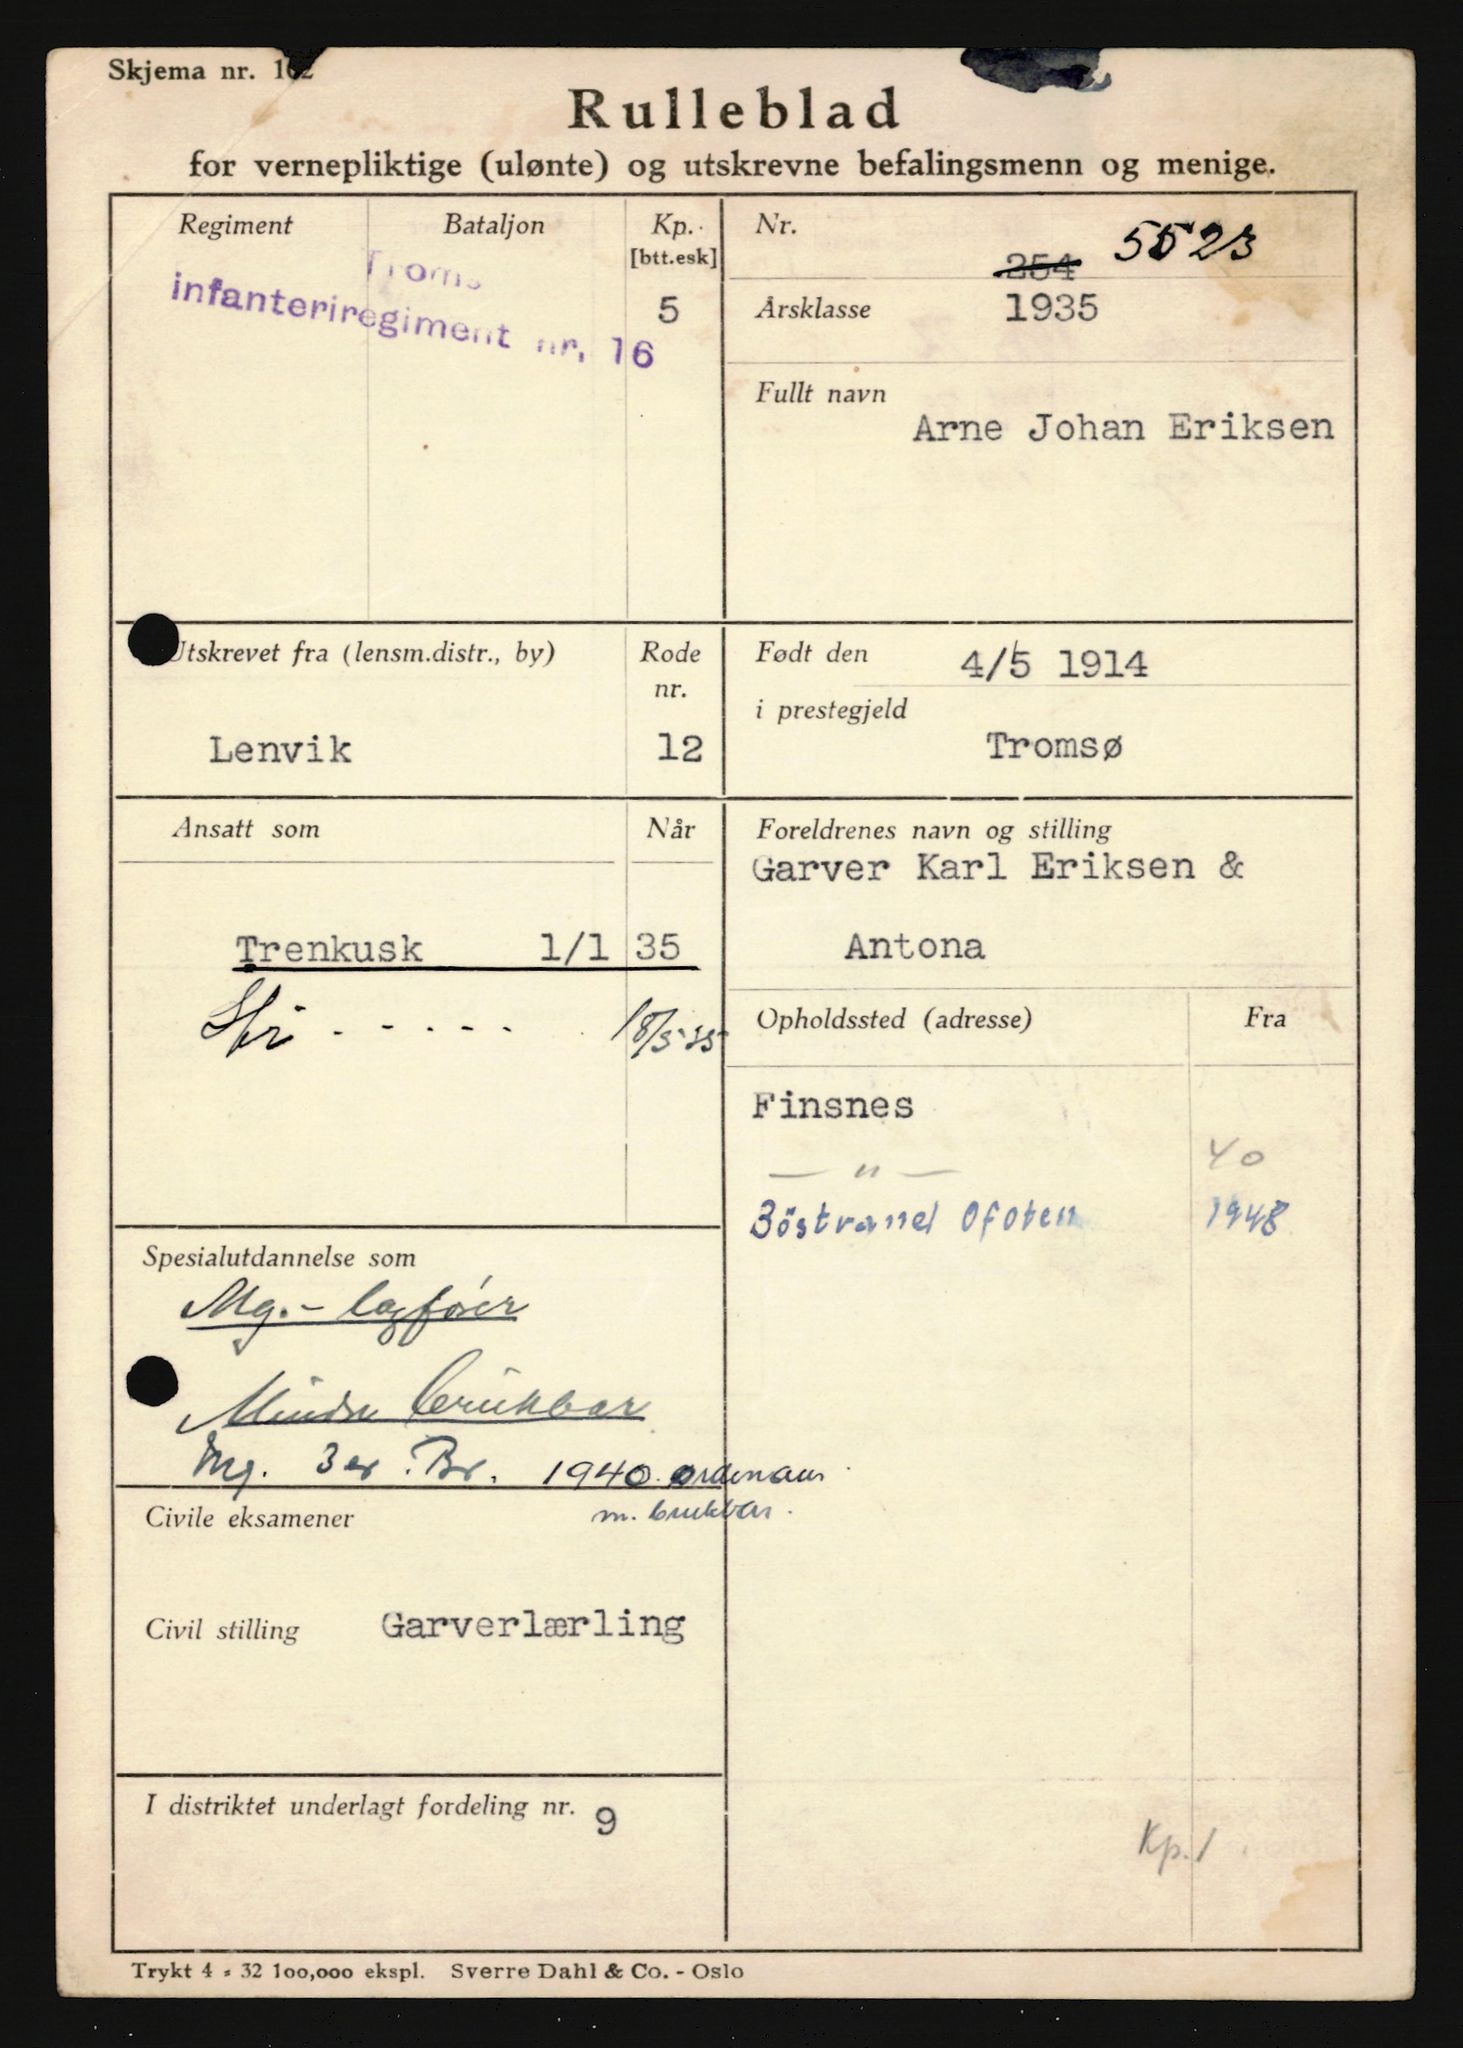 Skjema nr. 162
Rulleblad
for vernepliktige (ulønte) og utskrevne befalingsmenn og menige.
Regiment
Bataljon
Kp.
[btt.esk]
Troms
infanteriregiment nr. 16
5
Nr.
254 5523
Årsklasse 1935
Fullt navn
Arne Johan Eriksen
Utskrevet fra (lensm.distr., by)
Rode
nr.
Lenvik
12
Født den 4/5 1914
i prestegjeld
Tromsø
Ansatt som
Når
Trenkusk 1/1 35
18/5 35
Foreldrenes navn og stilling
Garver Karl Eriksen &
Antona
Opholdssted (adresse)
Fra
Finsnes
— " — 40
Böstrand Ofoten 1948
Spesialutdannelse som
Mg.- lagfører
Mindre brukbar
Mg. 3er. Br. 1940. ordonans
m. brukbar.
Civile eksamener
Civil stilling Garverlærling
I distriktet underlagt fordeling nr. 9
Kp. 1
Trykt 4 - 32 100,000 ekspl. Sverre Dahl & Co. - Oslo